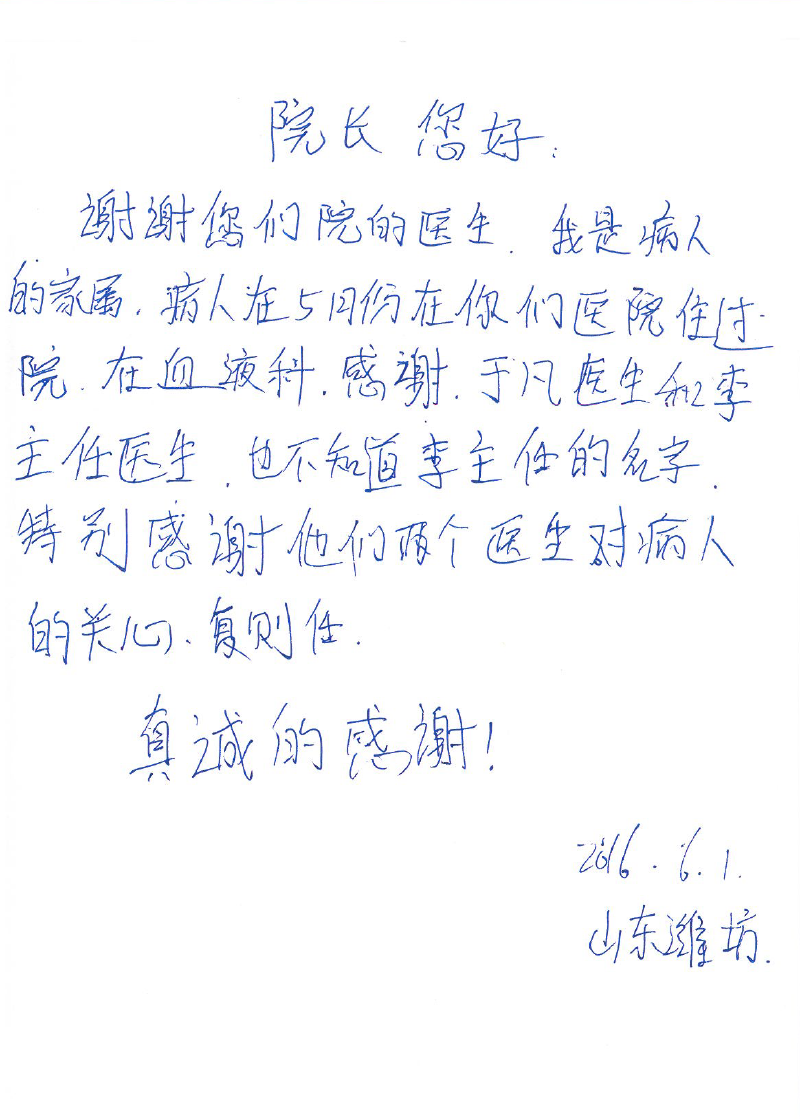 院长 您好:
谢谢您们院的医生.我是病人
的家属.病人在5月份在你们医院住过
院.在血液科.感谢.于凡医生和李
主任医生.也不知道李主任的名字.
特别感谢他们两个医生对病人
的关心、复则任.
真诚的感谢!
2016.6.1.
山东潍坊.